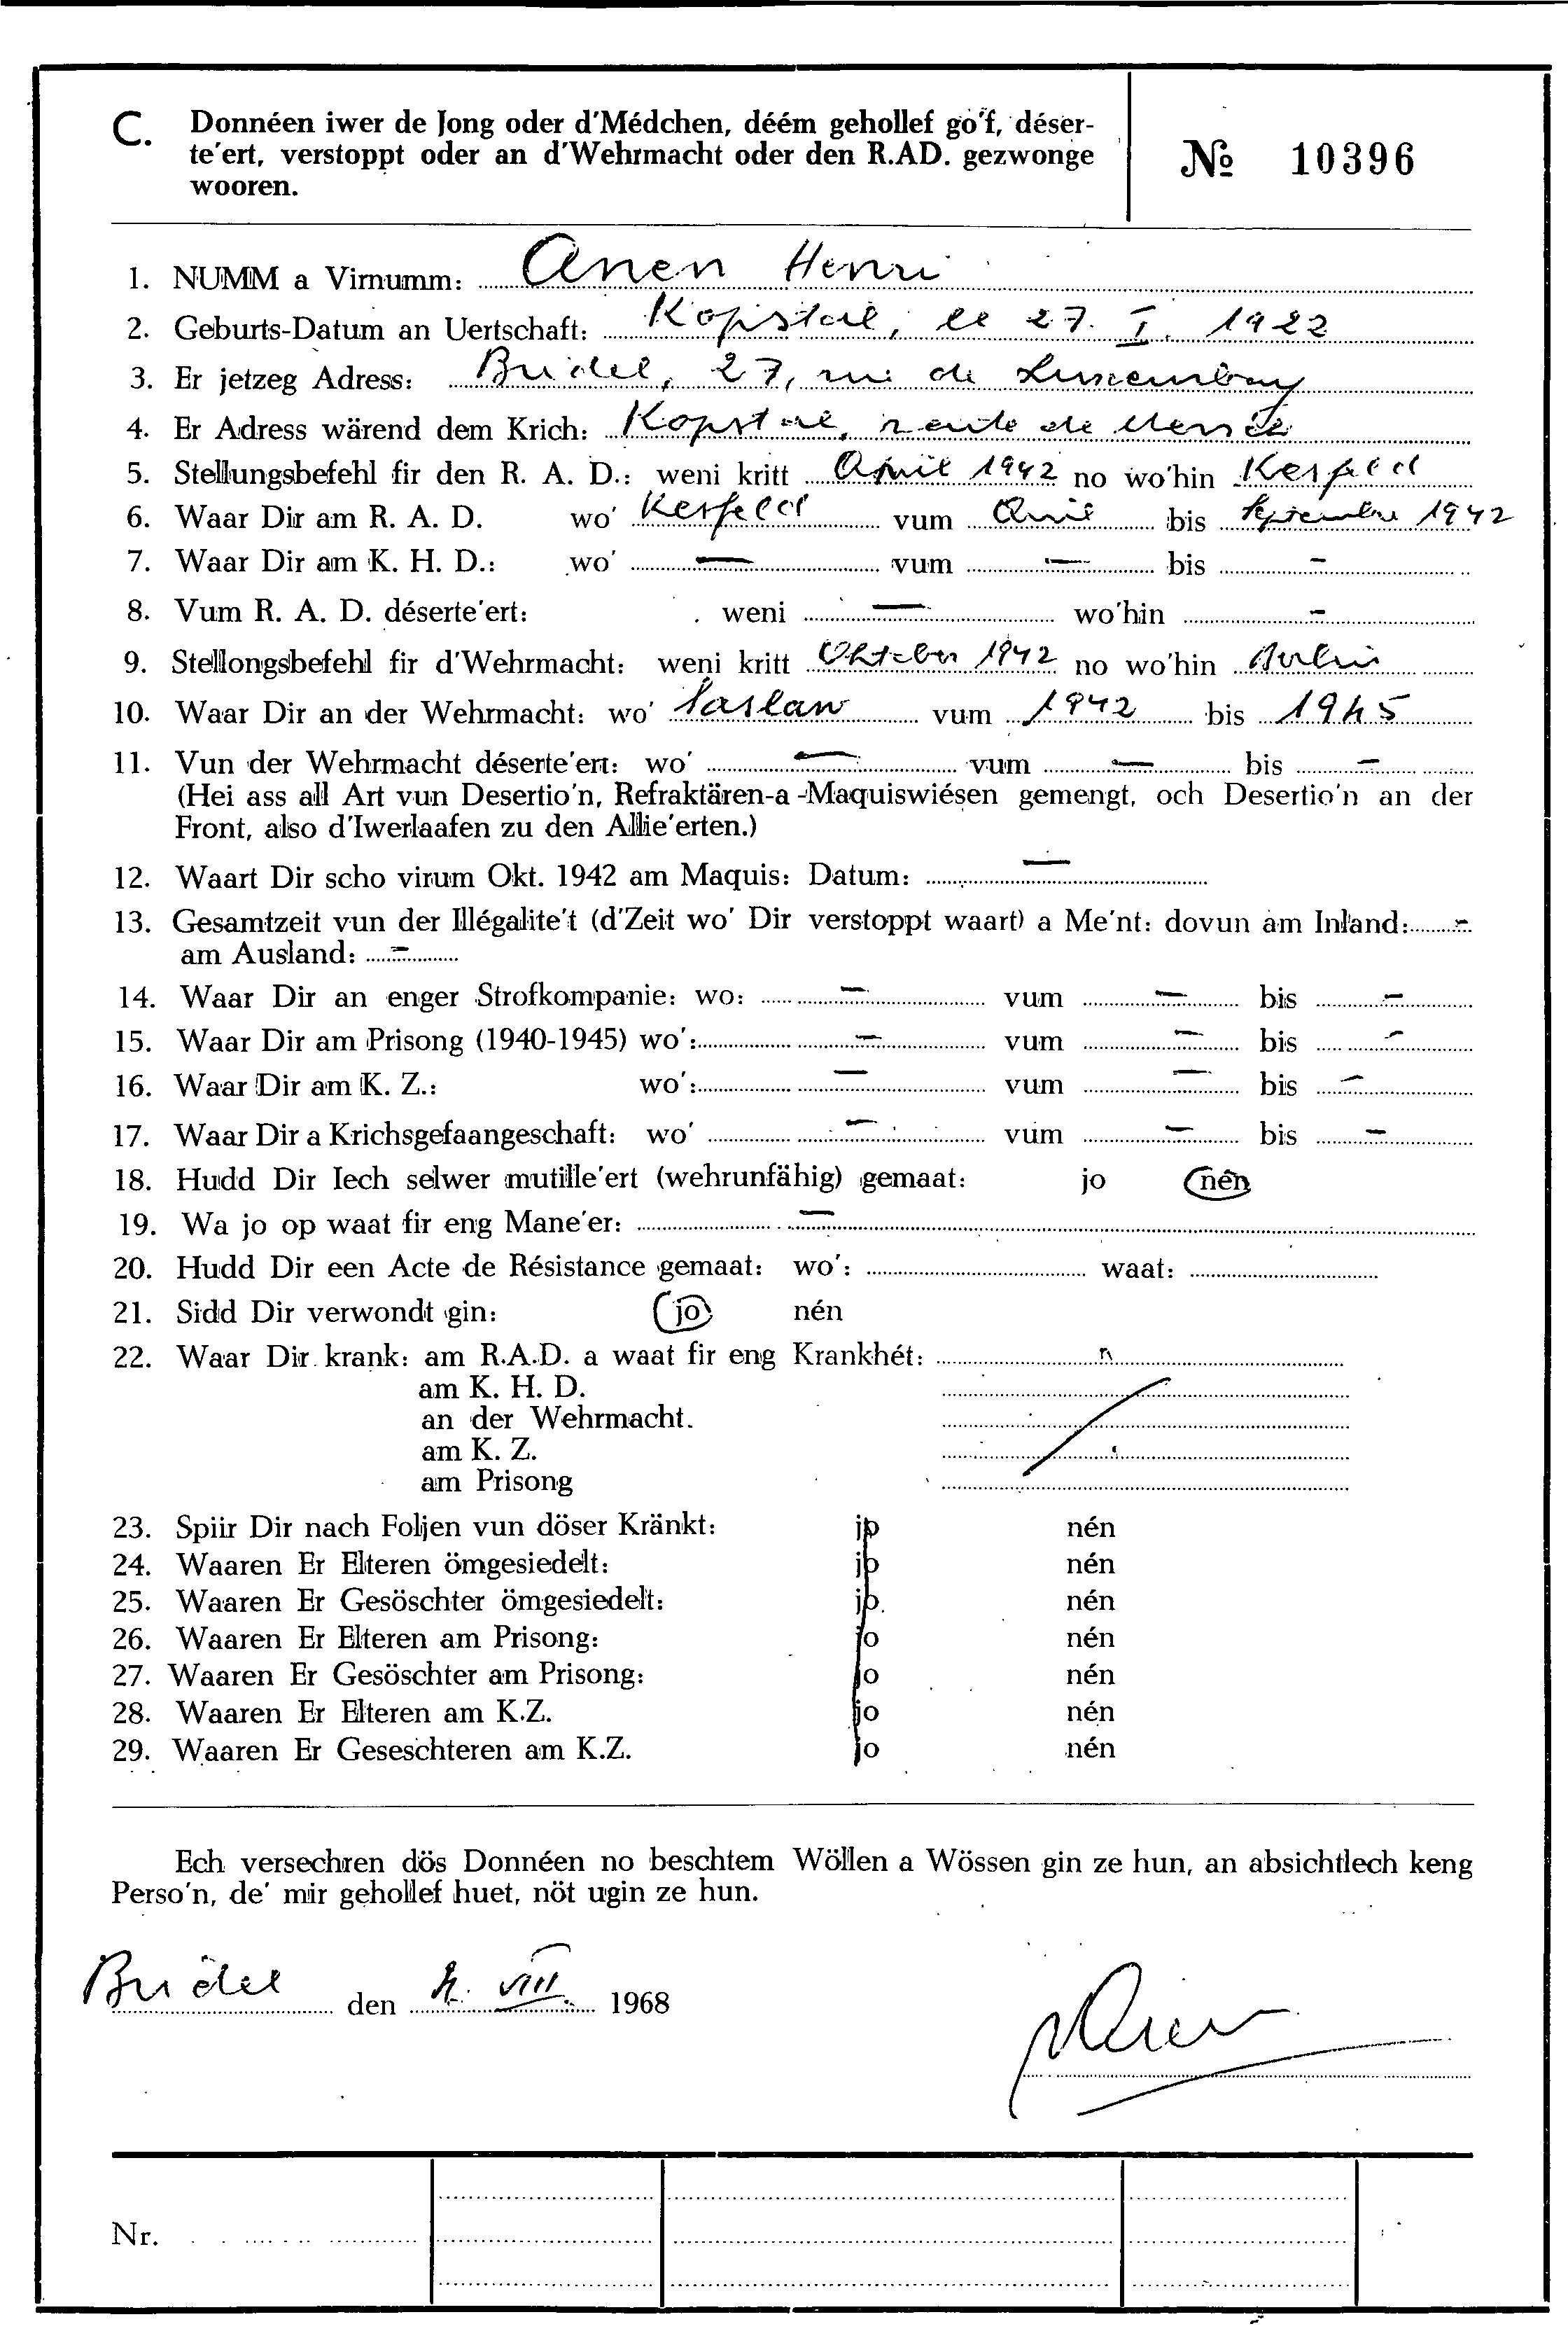 C. Donnéen iwer de Jong oder d'Médchen, déém gehollef go'f, déser-
te'ert, verstoppt oder an d'Wehrmacht oder den R.AD. gezwonge
wooren.
№ 10396
1. NUMM a Virnumm: Anen Henri
2. Geburts-Datum an Uertschaft: Kopstal, le 27. I. 1922
3. Er jetzeg Adress: Bridel, 27, rue de Luxembourg
4. Er Adress wärend dem Krich: Kopstal, route de Mersch
5. Stellungsbefehl fir den R. A. D.: weni kritt April 1942 no wo'hin Kerfeld
6. Waar Dir am R. A. D. wo' Kerfeld vum Avril bis Septembre 1942
7. Waar Dir am K. H. D.: wo' — vum — bis –
8. Vum R. A. D. déserte'ert: weni — wo'hin –
9. Stellongsbefehl fir d'Wehrmacht: weni kritt Oktober 1942 no wo'hin Berlin
10. Waar Dir an der Wehrmacht: wo' vum 1942 bis 1945
11. Vun der Wehrmacht déserte'ert: wo' — vum — bis –
(Hei ass all Art vun Desertio'n, Refraktären-a-Maquiswiésen gemengt, och Desertio'n an der
Front, also d'Iwerlaafen zu den Allie'erten.)
12. Waart Dir scho virum Okt. 1942 am Maquis: Datum: —
13. Gesamtzeit vun der Illégalite't (d'Zeit wo' Dir verstoppt waart) a Me'nt: dovun am Inland: –
am Ausland: –
14. Waar Dir an enger Strofkompanie: wo: – vum – bis –
15. Waar Dir am Prisong (1940-1945) wo': – vum – bis –
16. Waar Dir am K. Z.: wo': – vum – bis –
17. Waar Dir a Krichsgefaangeschaft: wo' – vum – bis –
18. Hudd Dir Iech selwer mutille'ert (wehrunfähig) gemaat: jo nén
19. Wa jo op waat fir eng Mane'er: –
20. Hudd Dir een Acte de Résistance gemaat: wo': waat:
21. Sidd Dir verwondt gin: jo nén
22. Waar Dir krank: am R.A.D. a waat fir eng Krankhét:
am K. H. D.
an der Wehrmacht.
am K. Z.
am Prisong
23. Spiir Dir nach Foljen vun döser Kränkt: jo nén
24. Waaren Er Elteren ömgesiedelt: jo nén
25. Waaren Er Gesöschter ömgesiedelt: jo nén
26. Waaren Er Elteren am Prisong: jo nén
27. Waaren Er Gesöschter am Prisong: jo nén
28. Waaren Er Elteren am K.Z. jo nén
29. Waaren Er Geseschteren am K.Z. jo nén
Ech versechren dös Donnéen no beschtem Wöllen a Wössen gin ze hun, an absichtlech keng
Perso'n, de' mir gehollef huet, nöt ugin ze hun.
Bridel den VIII. 1968
Nr.